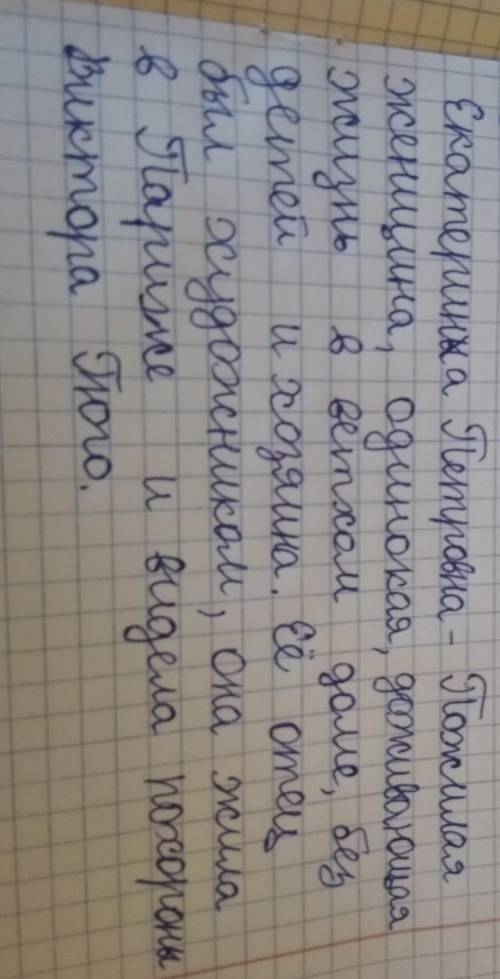 Екатерина Петровна - Пожилая
женщина, одинокая, доживающая
жизнь в ветхом доме, без
детей и хозяина. Её отец
был художником, она жила
в Париже и видела похороны
Виктора Гюго.